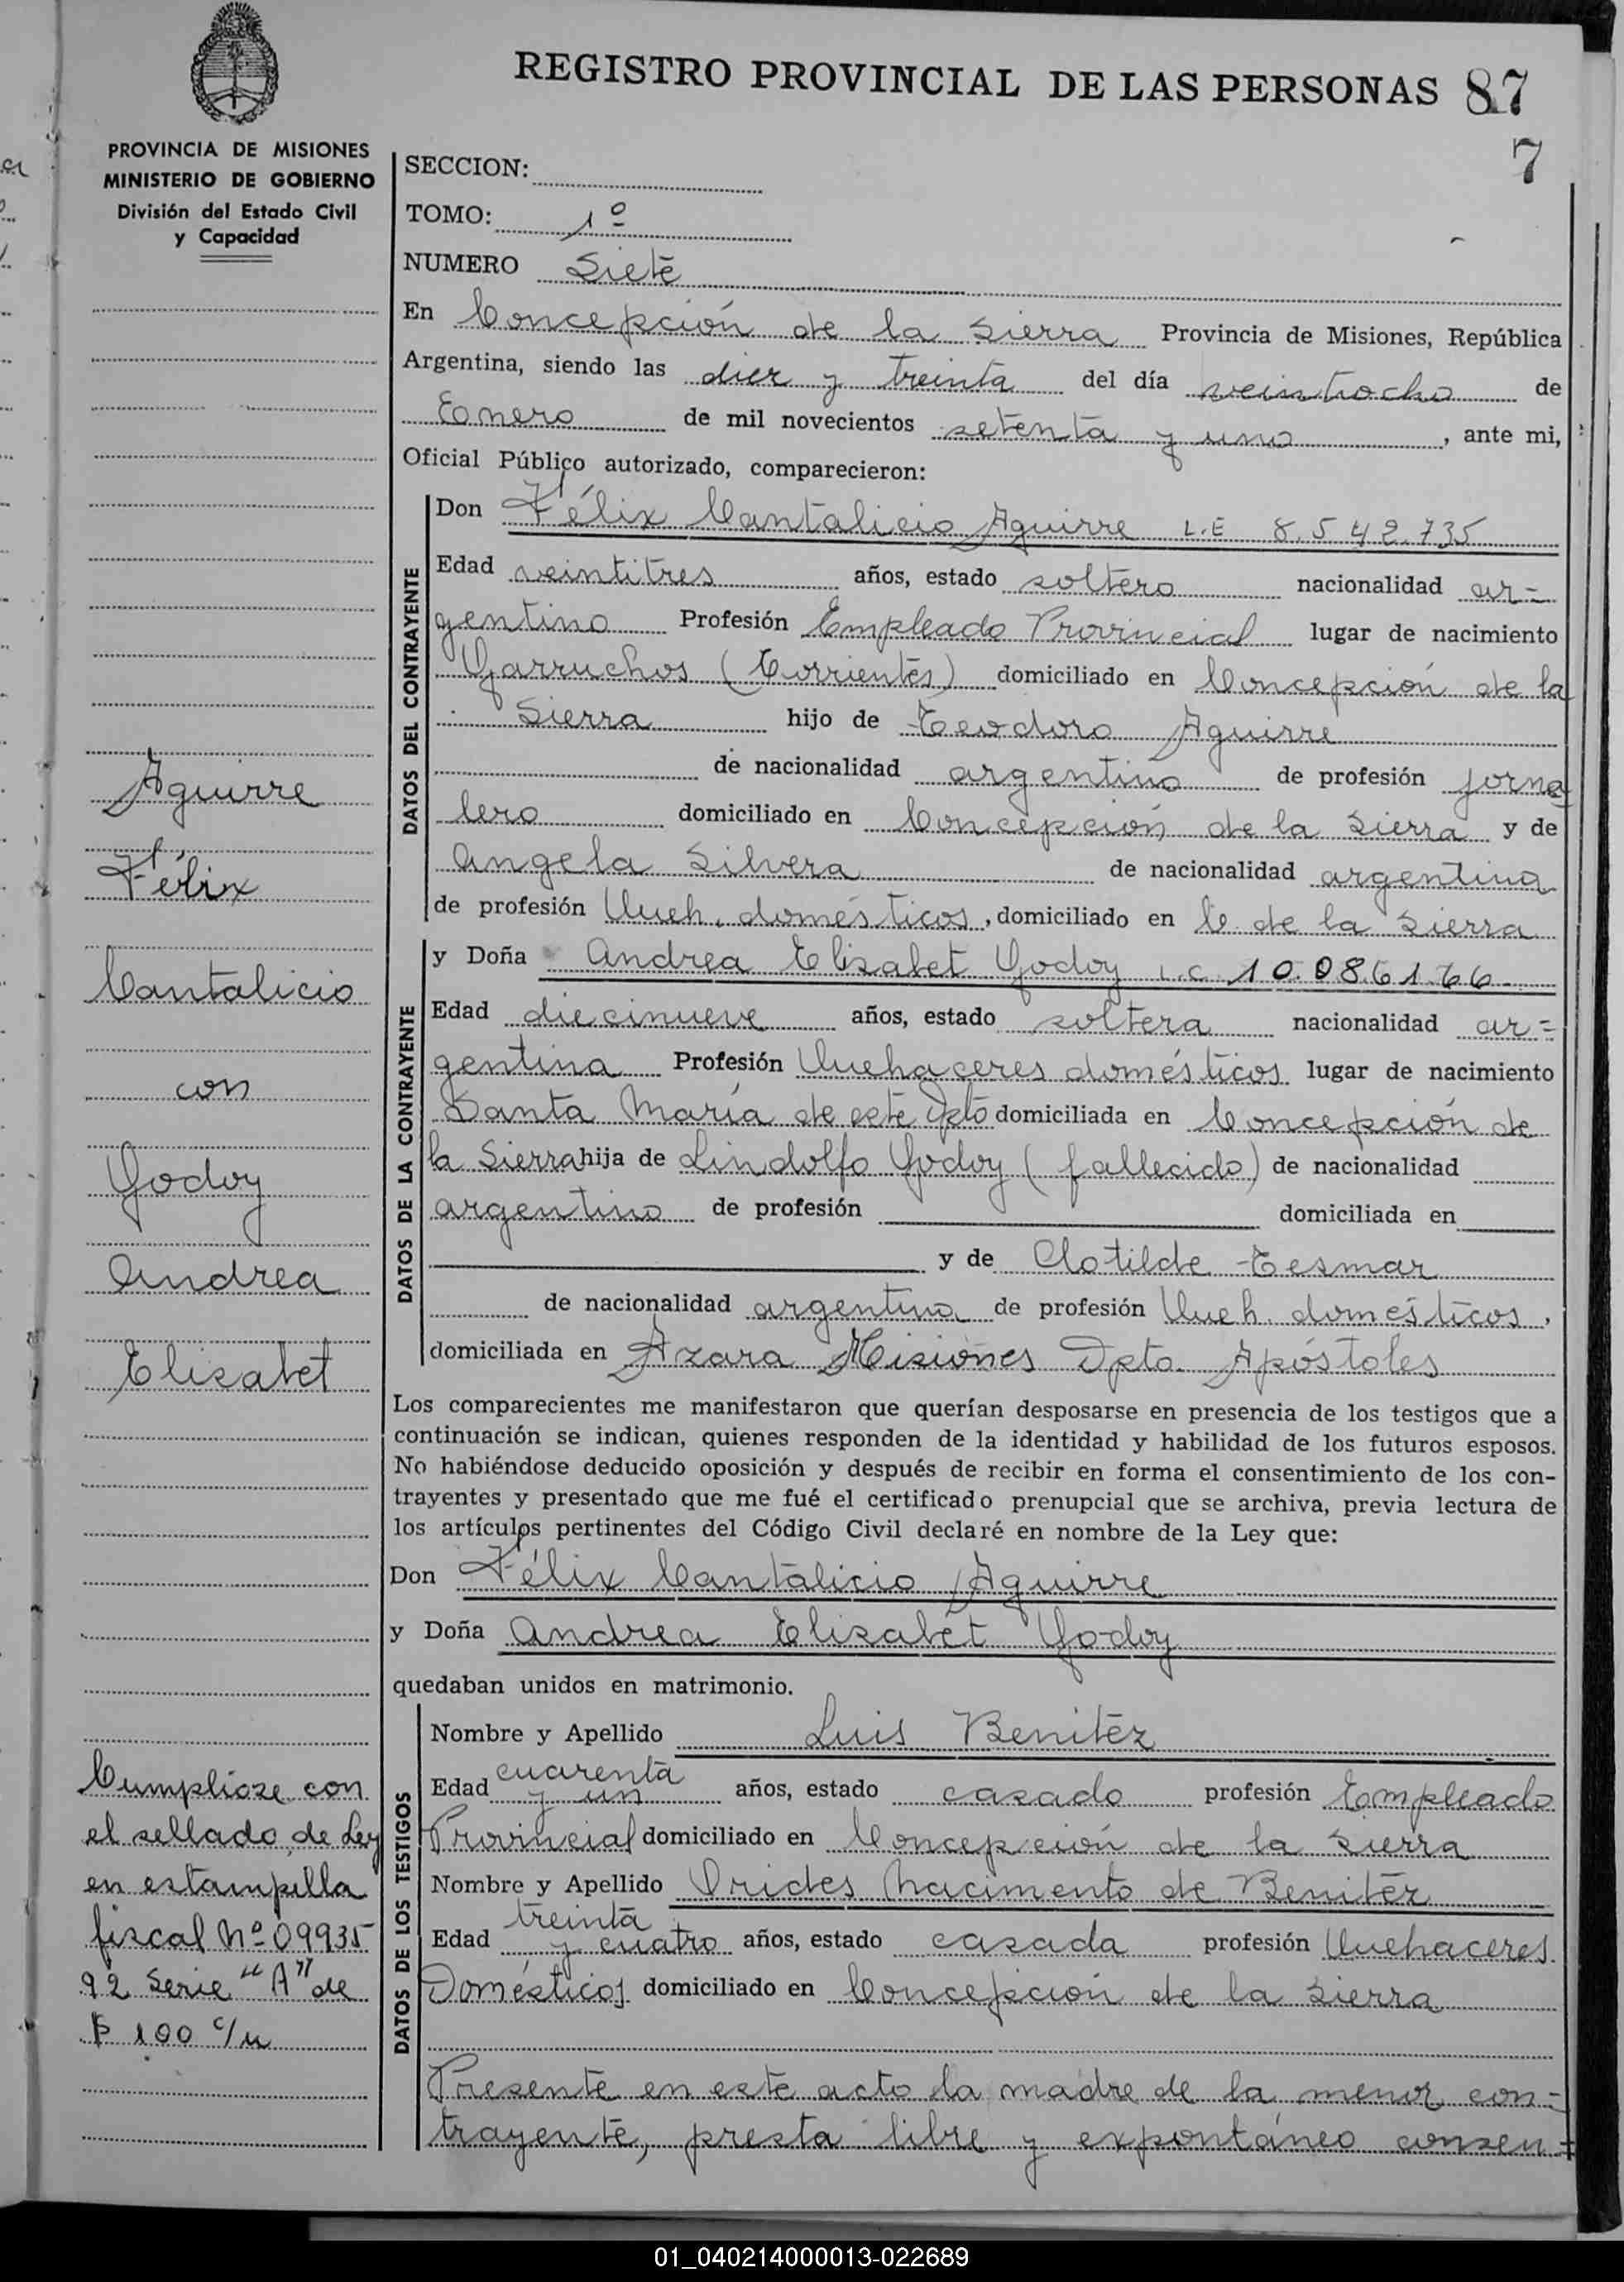 REGISTRO PROVINCIAL DE LAS PERSONAS 87
7
PROVINCIA DE MISIONES
MINISTERIO DE GOBIERNO
División del Estado Civil
y Capacidad
Aguirre
Félix
Cantalicio
con
Godoy
Andrea
Elisabet
Cumplióse con
el sellado de Ley
en estampilla
fiscal Nº 09935
92 Serie "A" de
$ 100 c/u
SECCION:
TOMO: 1º
NUMERO Siete
En Concepción de la Sierra Provincia de Misiones, República
Argentina, siendo las diez y treinta del día veintiocho de
Enero de mil novecientos setenta y uno, ante mi,
Oficial Público autorizado, comparecieron:
DATOS DEL CONTRAYENTE
Don Félix Cantalicio Aguirre L.E 8.542.735
Edad veintitres años, estado soltero nacionalidad ar=
gentino Profesión Empleado Provincial lugar de nacimiento
Garruchos (Corrientes) domiciliado en Concepción de la
Sierra hijo de Teodoro Aguirre
de nacionalidad argentino de profesión jorna
lero domiciliado en Concepción de la Sierra y de
Angela Silvera de nacionalidad argentina
de profesión Queh. domésticos, domiciliado en C. de la Sierra
DATOS DE LA CONTRAYENTE
y Doña Andrea Elisabet Godoy L.C. 10.086.166
Edad diecinueve años, estado soltera nacionalidad ar=
gentina Profesión Quehaceres domésticos lugar de nacimiento
Santa María de este Dpto domiciliada en Concepción de
la Sierra hija de Lindolfo Godoy (fallecido) de nacionalidad
argentino de profesión domiciliada en
y de Clotilde Tesmar
de nacionalidad argentina de profesión Queh. domésticos,
domiciliada en Azara Misiones Dpto. Apóstoles
Los comparecientes me manifestaron que querían desposarse en presencia de los testigos que a
continuación se indican, quienes responden de la identidad y habilidad de los futuros esposos.
No habiéndose deducido oposición y después de recibir en forma el consentimiento de los con-
trayentes y presentado que me fué el certificado prenupcial que se archiva, previa lectura de
los artículos pertinentes del Código Civil declaré en nombre de la Ley que:
Don Félix Cantalicio Aguirre
y Doña Andrea Elisabet Godoy
quedaban unidos en matrimonio.
DATOS DE LOS TESTIGOS
Nombre y Apellido Luis Benitez
Edad cuarenta y un años, estado casado profesión Empleado
Provincial domiciliado en Concepción de la Sierra
Nombre y Apellido Orides Nacimento de Benitez
Edad treinta y cuatro años, estado casada profesión Quehaceres
Domésticos domiciliado en Concepción de la Sierra
Presente en este acto la madre de la menor con=
trayente, presta libre y expontáneo consen=
01_040214000013-022689